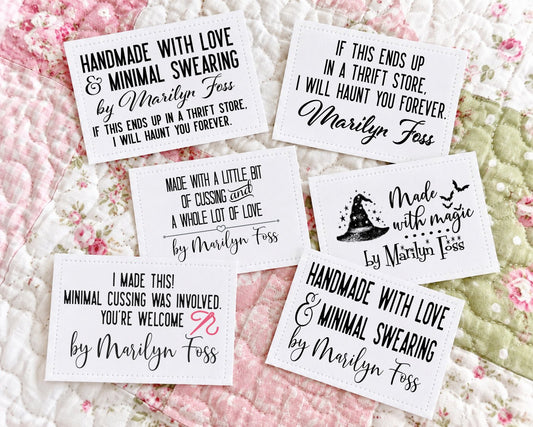 HANDMADE WITH LOVE
& MINIMAL SWEARING
by Marilyn Foss
IF THIS ENDS UP IN A THRIFT STORE,
I WILL HAUNT YOU FOREVER.
IF THIS ENDS UP
IN A THRIFT STORE,
I WILL HAUNT YOU FOREVER.
Marilyn Foss
MADE WITH A LITTLE BIT
OF CUSSING and
A WHOLE LOT OF LOVE
by Marilyn Foss
Made
with magic
by Marilyn Foss
I MADE THIS!
MINIMAL CUSSING WAS INVOLVED.
YOU'RE WELCOME
by Marilyn Foss
HANDMADE WITH LOVE
& MINIMAL SWEARING
by Marilyn Foss